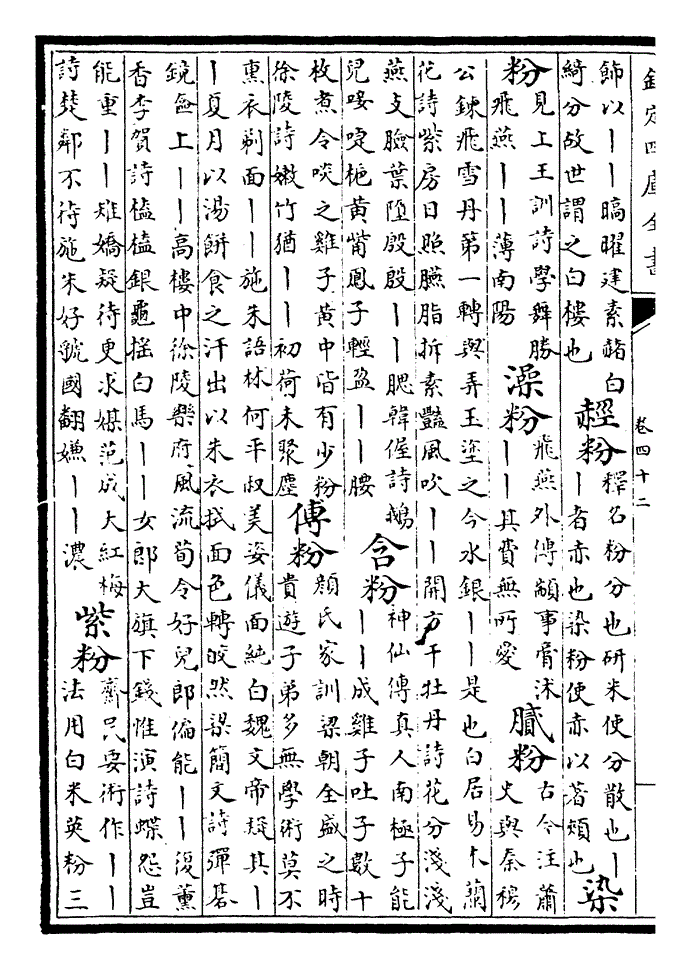 欽定四庫全書
卷四十二
飾以丨丨暠曜建素赭白
綺分故世謂之白樓也
䞓粉
釋名粉分也研米使分散也丨
丨者赤也染粉使赤以著頰也
染
粉
見上王訓詩學舞勝
飛燕丨丨薄南陽
澡粉
飛燕外傳顓事膏沐
丨丨其費無所愛
膩粉
古今注蕭
史與秦穆
公鍊飛雪丹第一轉與弄玉塗之今水銀丨丨是也白居易木蘭
花詩紫房日照臙脂拆素豔風吹丨丨開方干牡丹詩花分淺淺
燕支臉葉墮殷殷丨丨腮韓偓詩鵝
兒唼啑梔黄觜鳳子輕盈丨丨腰
含粉
神仙傳真人南極子能
丨丨成雞子吐子數十
枚煮令啖之雞子黄中皆有少粉
徐陵詩嫩竹猶丨丨初荷未聚塵
傅粉
顏氏家訓梁朝全盛之時
貴遊子弟多無學術莫不
熏衣剃面丨丨施朱語林何平叔美姿儀面純白魏文帝疑其丨
丨夏月以湯餅食之汗出以朱衣拭面色轉皎然梁簡文詩彈碁
鏡奩上丨丨高樓中徐陵樂府風流荀令好兒郎偏能丨丨復薰
香李賀詩榼榼銀龜搖白馬丨丨女郎大旗下錢惟演詩蝶怨豈
能重丨丨雉嬌疑待更求媒范成大紅梅
詩楚鄰不待施朱好虢國翻嫌丨丨濃
紫粉
齊民要術作丨丨
法用白米英粉三